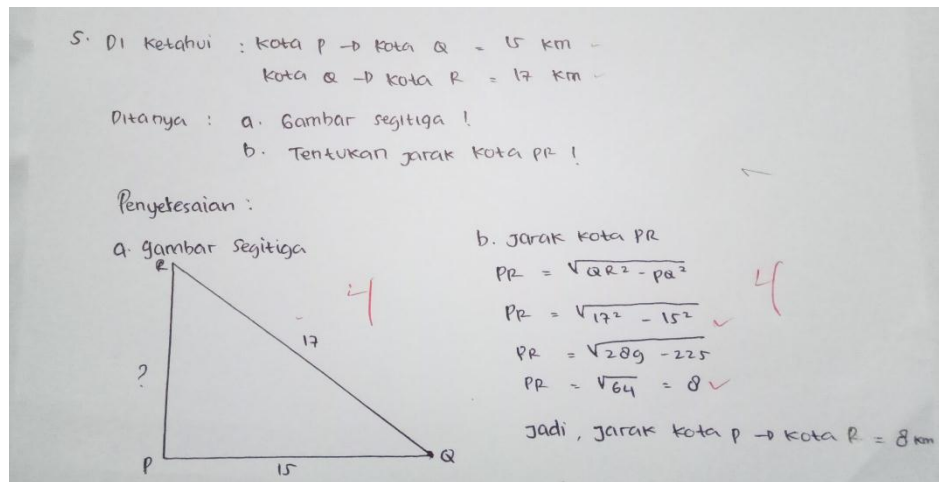 5. Di ketahui : kota P → kota Q = 15 km
kota Q → kota R = 17 km
Ditanya : a. Gambar segitiga !
b. Tentukan jarak kota PR !
Penyelesaian :
a. gambar segitiga
R
4
17
?
P
15
Q
b. Jarak kota PR
PR = √QR² - PQ²
4
PR = √17² - 15²
PR = √289 - 225
PR = √64 = 8
Jadi, Jarak kota P → kota R = 8 km